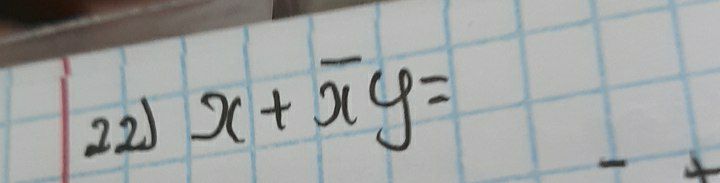 22) x + x̄ y =
- +